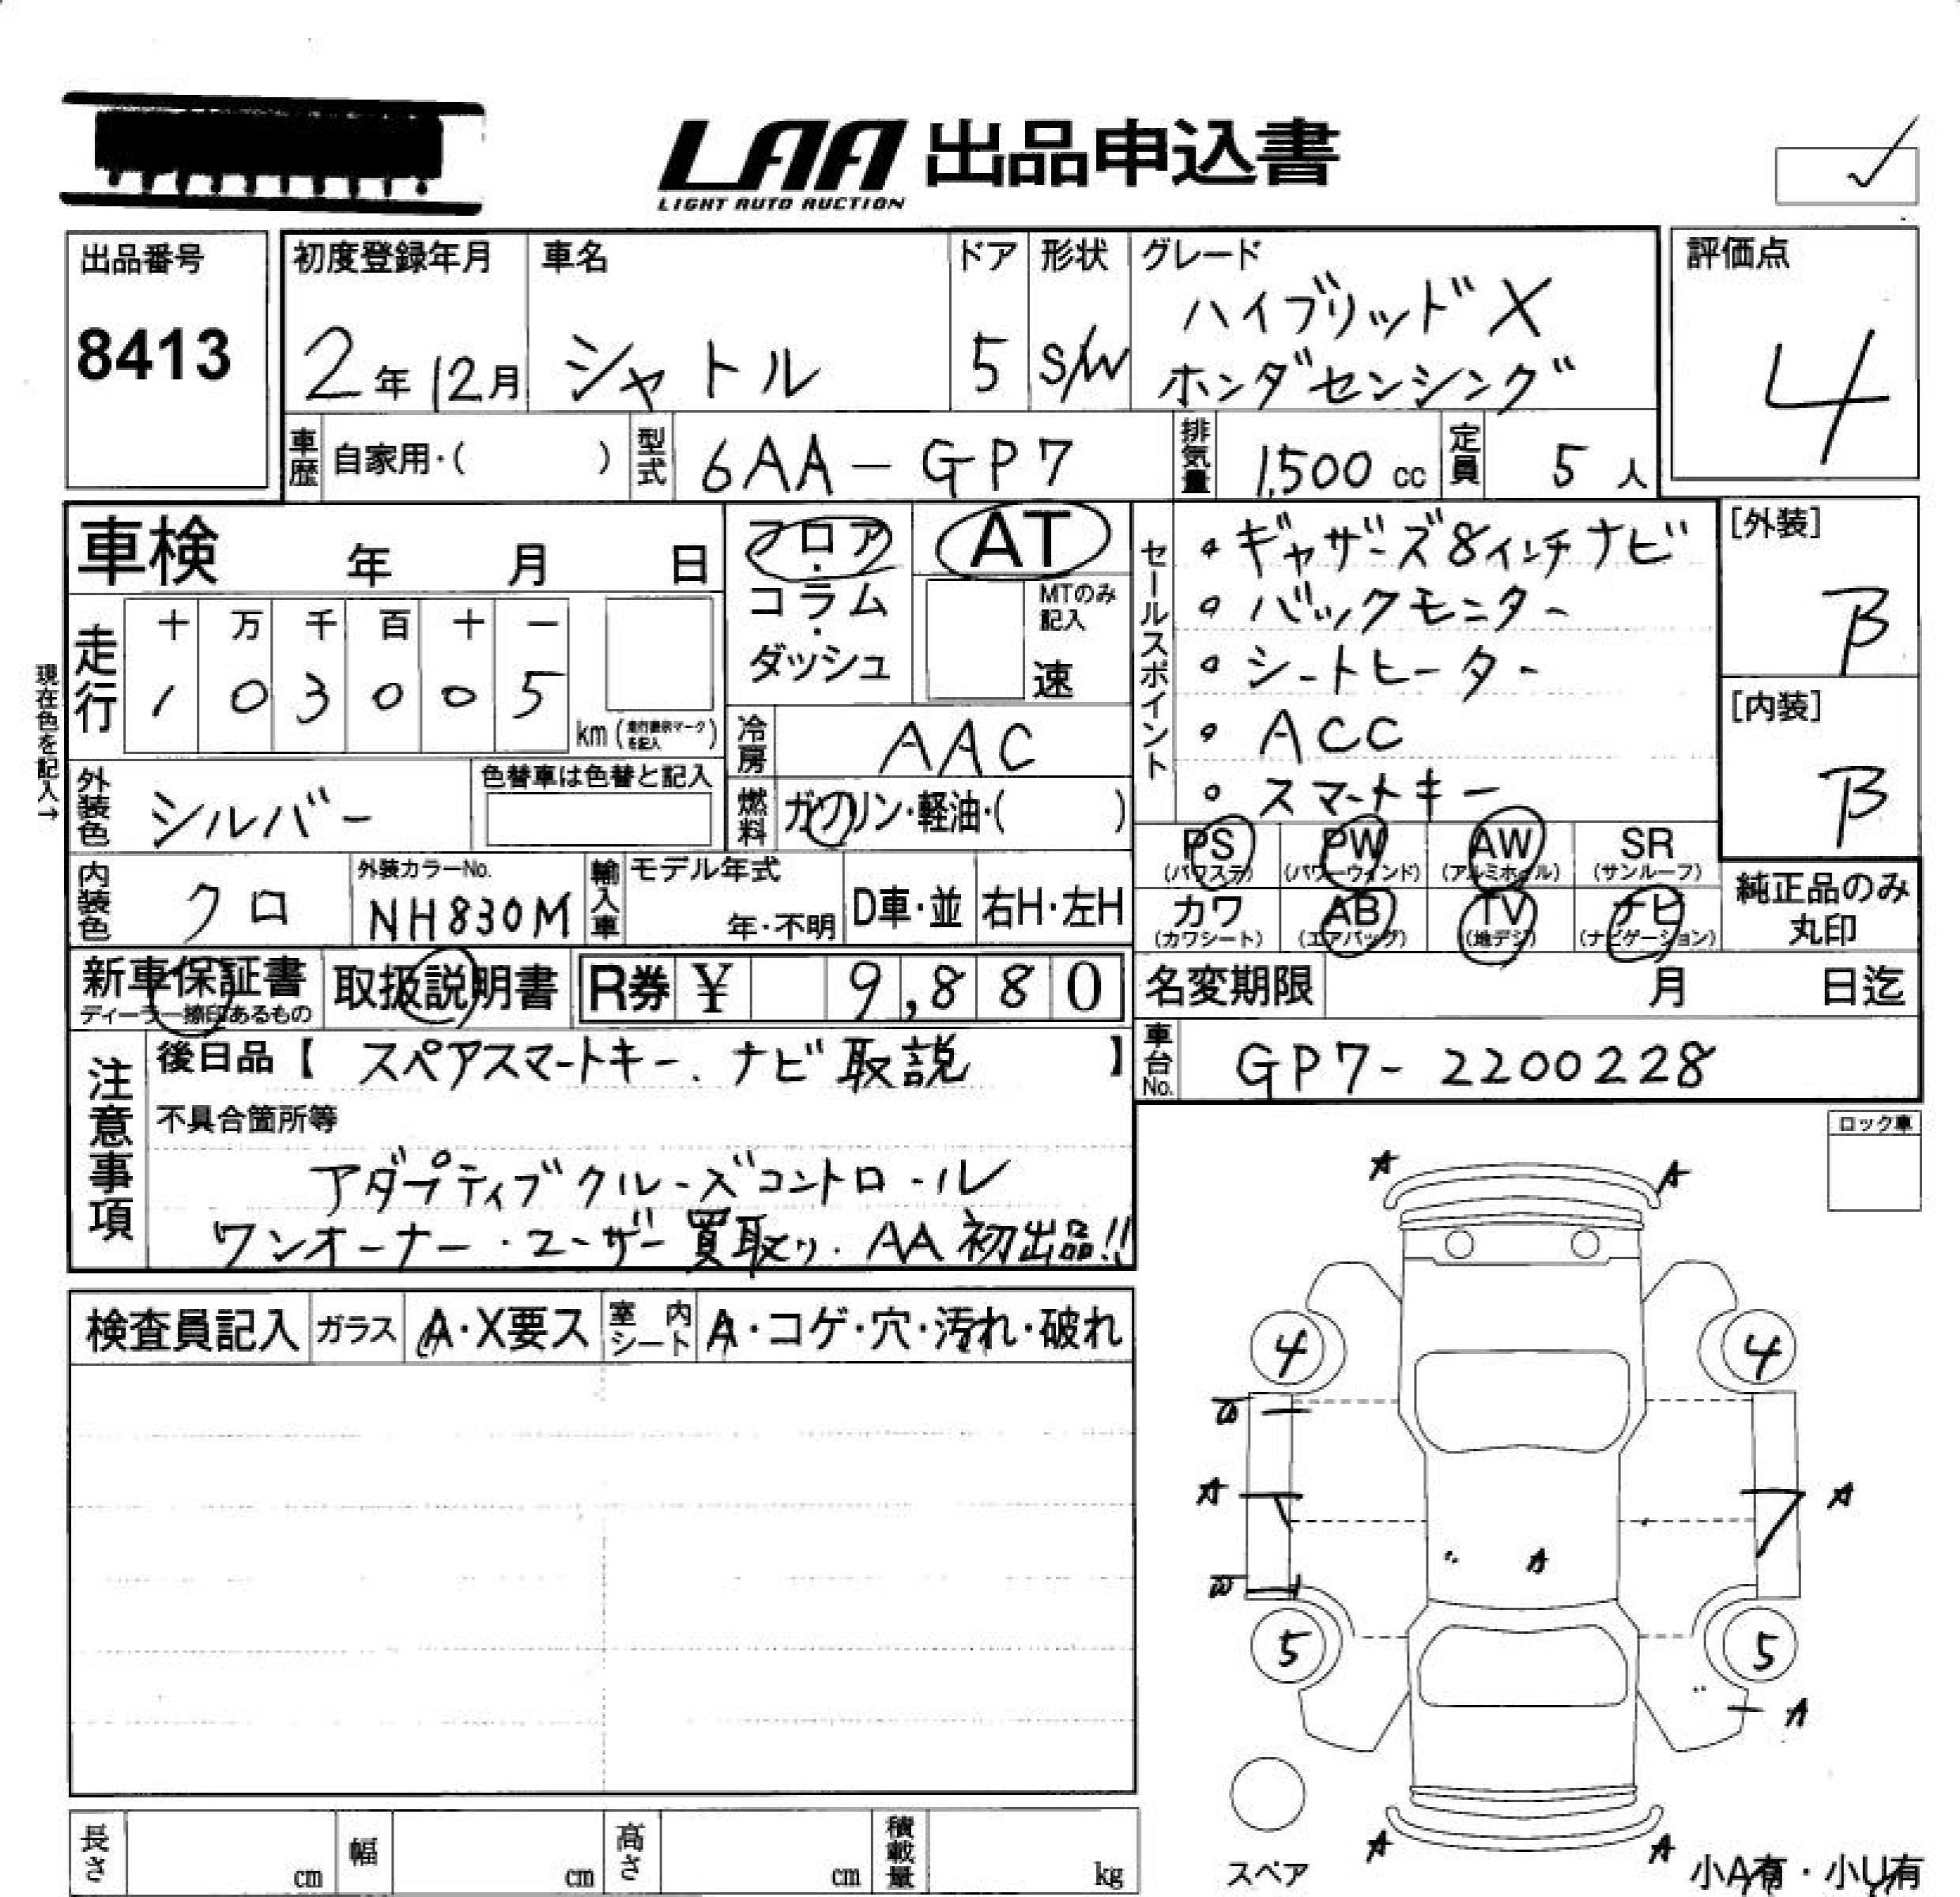 LAA 出品申込書
LIGHT AUTO AUCTION
出品番号
8413
初度登録年月
2年12月
車名
シャトル
ドア
5
形状
S/W
グレード
ハイブリッドX
ホンダセンシング
評価点
4
車歴
自家用・( )
型式
6AA-GP7
排気量
1,500cc
定員
5人
車検 年 月 日
フロア・コラム・ダッシュ
AT
MTのみ記入
速
セールスポイント
・ギャザーズ8インチナビ
・バックモニター
・シートヒーター
・ACC
・スマートキー
[外装]
B
[内装]
B
現在色を記入→
走行
十 万 千 百 十 一
1 0 3 0 0 5
km
冷房
AAC
外装色
シルバー
色替車は色替と記入
燃料
ガソリン・軽油・( )
PS (パワステ)
PW (パワーウィンド)
AW (アルミホイル)
SR (サンルーフ)
カワ (カワシート)
AB (エアバッグ)
TV (地デジ)
ナビ (ナビゲーション)
純正品のみ丸印
内装色
クロ
外装カラーNo.
NH830M
輸入車
モデル年式
年・不明
D車・並
右H・左H
新車保証書
ディーラー捺印あるもの
取扱説明書
R券 ¥ 9,880
名変期限 月 日迄
車台No.
GP7-2200228
注意事項
後日品【 スペアスマートキー、ナビ取説 】
不具合箇所等
アダプティブクルーズコントロール
ワンオーナー・ユーザー買取り、AA初出品!!
ロック車
検査員記入
ガラス
A・X要ス
室内シート
A・コゲ・穴・汚れ・破れ
A A
4 4
A A
A
5 5
A
A A
スペア
小A有・小U有
長さ cm
幅 cm
高さ cm
積載量 kg